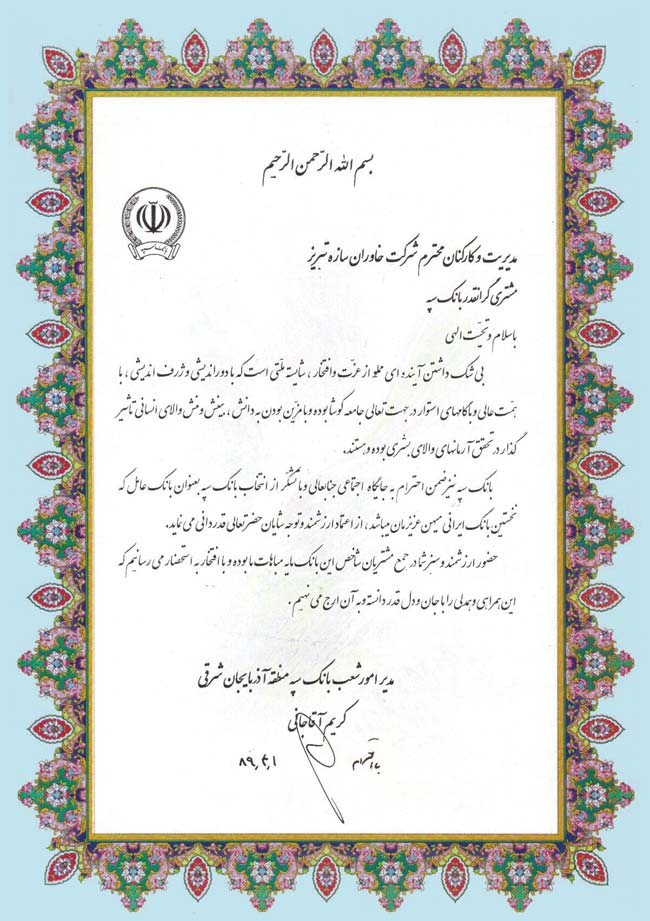 بسم الله الرّحمن الرّحیم
بانک سپه
مدیریت و کارکنان محترم شرکت خاوران سازه تبریز
مشتری گرانقدر بانک سپه
با سلام و تحیّت الهی
بی شک داشتن آینده ای مملو از عزّت و افتخار ، شایسته ملّتی است که با دوراندیشی و ژرف اندیشی ، با
همّت عالی و با گامهای استوار در جهت تعالی جامعه کوشا بوده و با مزّین بودن به دانش ، بینش و منش والای انسانی تاثیر
گذار در تحقق آرمانهای والای بشری بوده و هستند.
بانک سپه نیز ضمن احترام به جایگاه اجتماعی جنابعالی و با تشکر از انتخاب بانک سپه بعنوان بانک عامل که
نخستین بانک ایرانی میهن عزیزمان میباشد ، از اعتماد ارزشمند و توجه شایان حضرتعالی قدردانی می نماید.
حضور ارزشمند و سبز شما در جمع مشتریان شاخص این بانک مایه مباهات ما بوده و با افتخار به استحضار می رسانیم که
این همراهی و همدلی را با جان و دل قدر دانسته و به آن ارج می نهیم .
مدیر امور شعب بانک سپه منطقه آذربایجان شرقی
کریم آقاجانی
با احترام
۸۹،۴،۱